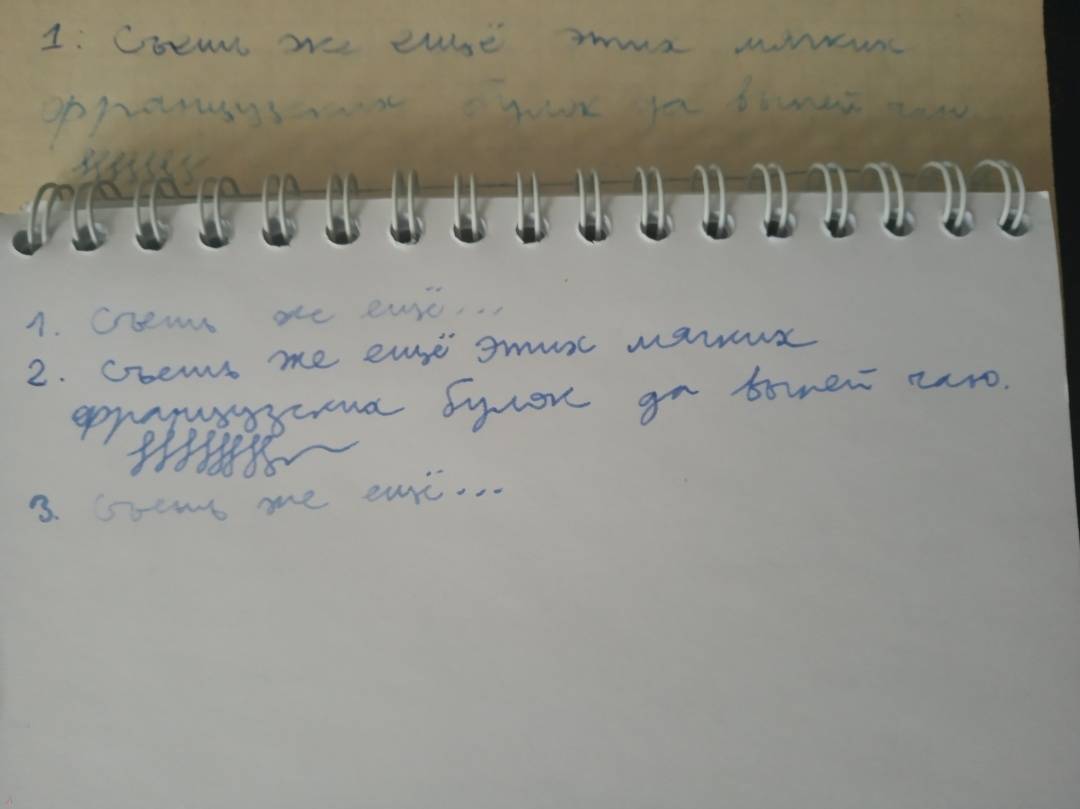 1: Съешь же ещё этих мягких
французских булок да выпей чаю.
1. Съешь же ещё...
2. Съешь же ещё этих мягких
французских булок да выпей чаю.
3. Съешь же ещё...